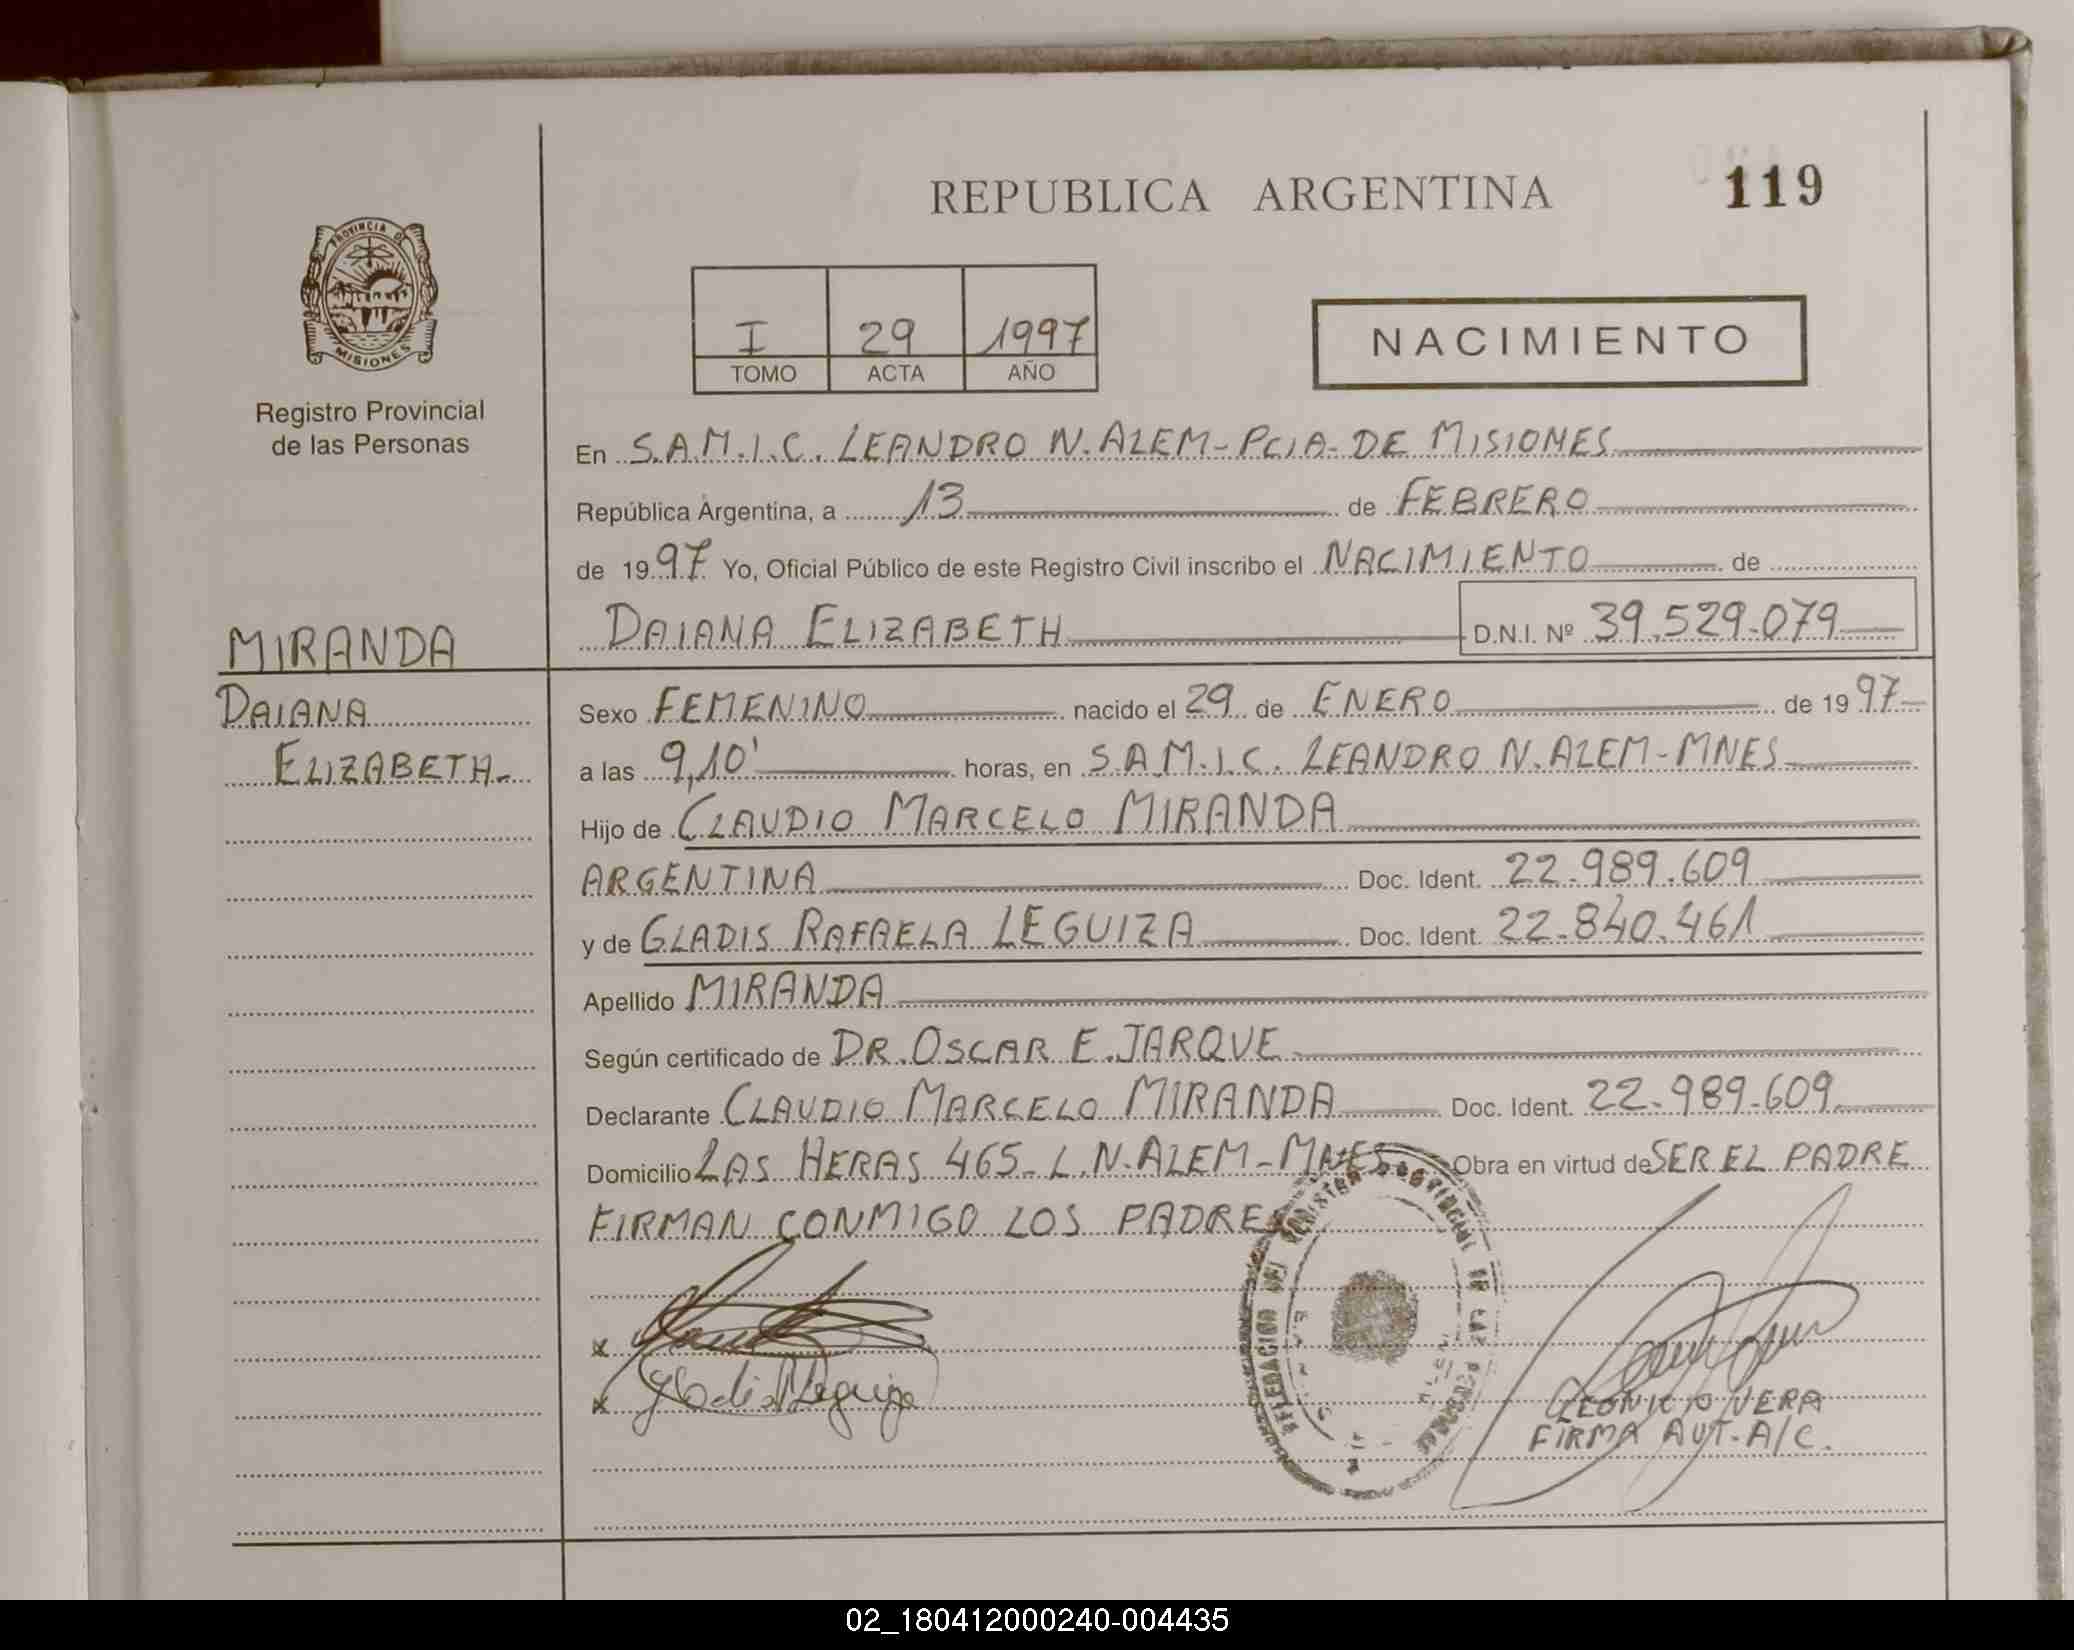 REPUBLICA ARGENTINA
119
PROVINCIA DE
MISIONES
Registro Provincial
de las Personas
I 29 1997
TOMO ACTA AÑO
NACIMIENTO
En S.A.M.I.C. LEANDRO N. ALEM - PCIA. DE MISIONES
República Argentina, a 13 de FEBRERO
de 1997 Yo, Oficial Público de este Registro Civil inscribo el NACIMIENTO de
DAIANA ELIZABETH D.N.I. Nº 39.529.079
MIRANDA
DAIANA
ELIZABETH.-
Sexo FEMENINO nacido el 29 de ENERO de 1997-
a las 9,10' horas, en S.A.M.I.C. LEANDRO N. ALEM - MNES
Hijo de CLAUDIO MARCELO MIRANDA
ARGENTINA Doc. Ident. 22.989.609
y de GLADIS RAFAELA LEGUIZA Doc. Ident. 22.840.461
Apellido MIRANDA
Según certificado de DR. OSCAR E. JARQUE
Declarante CLAUDIO MARCELO MIRANDA Doc. Ident. 22.989.609
Domicilio LAS HERAS 465- L.N. ALEM - MNES Obra en virtud de SER EL PADRE
FIRMAN CONMIGO LOS PADRES
DELEGACION DEL REGISTRO PROVINCIAL DE LAS PERSONAS
x
x Gladis Leguiza
LEONICIO VERA
FIRMA AUT. A/C.
02_180412000240-004435